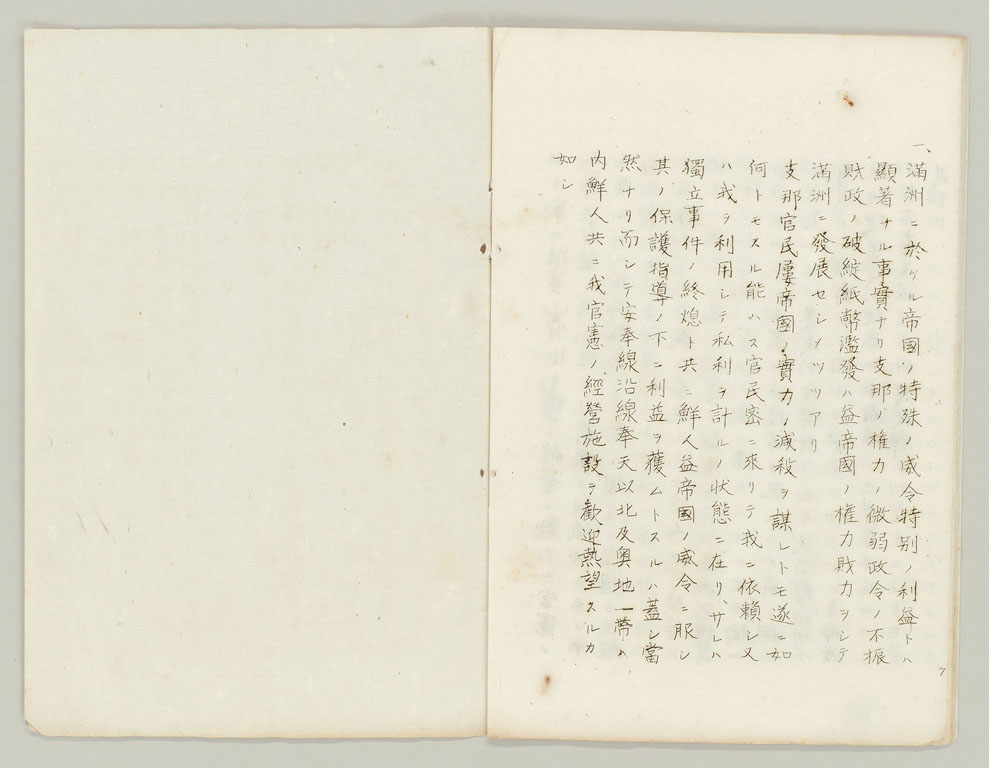 一、滿洲ニ於ケル帝國ノ特殊ノ威令特別ノ利益トハ
顯著ナル事實ナリ支那ノ権力ノ微弱政令ノ不振
財政ノ破綻紙幣濫發ハ益帝國ノ権力財力ヲシテ
滿洲ニ發展セシメツツアリ
支那官民屢帝國ノ實力ノ減殺ヲ謀レトモ遂ニ如
何トモスル能ハス官民密ニ來リテ我ニ依頼シ又
ハ我ヲ利用シテ私利ヲ計ルノ状態ニ在リ、サレハ
獨立事件ノ終熄ト共ニ鮮人益帝國ノ威令ニ服シ
其ノ保護指導ノ下ニ利益ヲ獲ムトスルハ蓋シ當
然ナリ而シテ安奉線沿線奉天以北及奥地一帶ハ
内鮮人共ニ我官憲ノ經營施設ヲ歡迎熱望スルカ
如シ
7